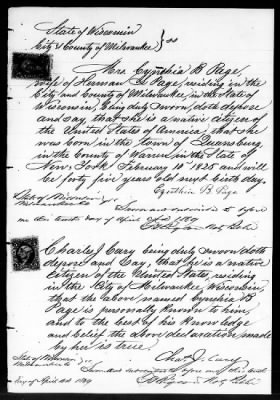 State of Wisconsin
City & County of Milwaukee } ss
Mrs. Cynthia B Page,
wife of Herman L Page, residing in the
City and County of Milwaukee, in the State of
Wisconsin, being duly sworn, doth depose
and say, that she is a native citizen of
the United States of America, that she
was born in the Town of
in the County of Warren, in the State of
New York February 10th 1825 and will
be forty five years old next birth day.
Cynthia B. Page
State of Wisconsin
Sworn and subscribed to before
me this day of April A.D. 1869
Charles J. Cary being duly sworn doth
depose and say, that he is a native
citizen of the United States, residing
in the City of Milwaukee, Wisconsin,
that the above named Cynthia B.
Page is personally known to him,
and to the best of his knowledge
and belief the above declaration made
by her is true.
Chas. J. Cary
State of Wisconsin
Sworn and subscribed before me this
day of April AD 1869